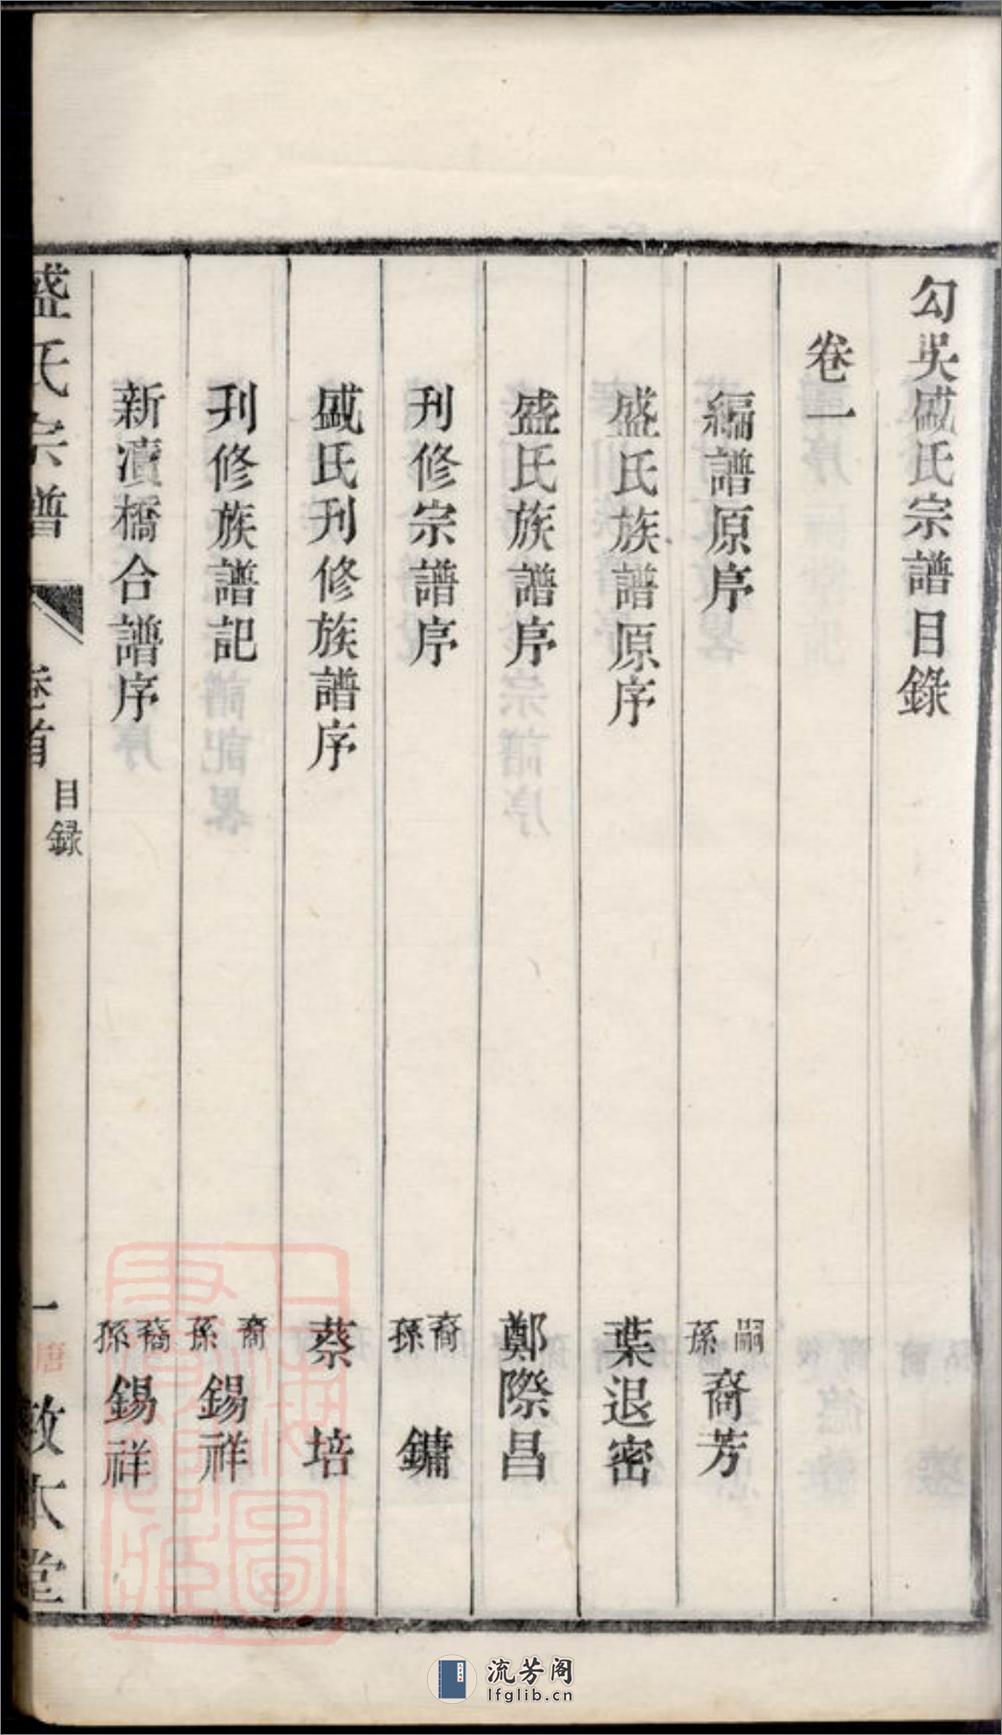 勾吳盛氏宗譜目錄
卷一
編譜原序 嗣孫 裔芳
盛氏族譜原序 葉退密
盛氏族譜序 鄭際昌
刊修宗譜序 裔孫 鏞
盛氏刊修族譜序 蔡培
刊修族譜記 裔孫 錫祥
新瀆橋合譜序 裔孫 錫祥
盛氏宗譜 卷首 目錄 一 敦本堂
流芳阁
lfglib.cn